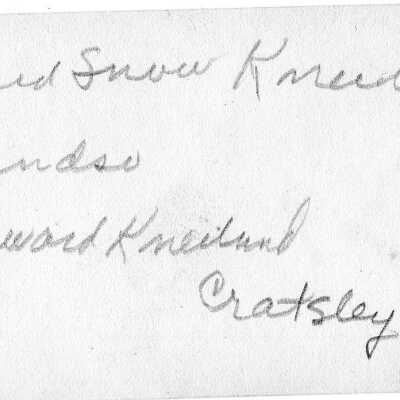 ed Snow Kneed
ndso
ward Kneilund
Cratsley